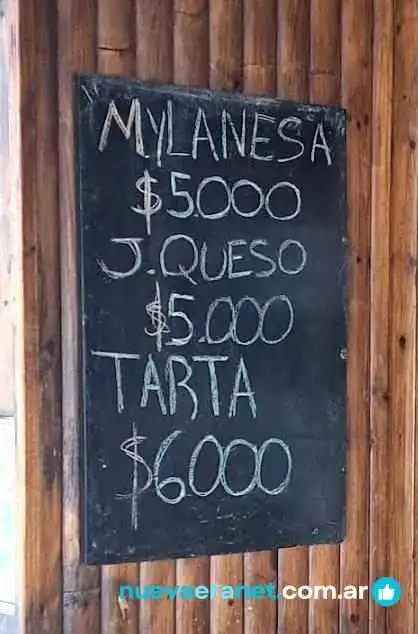 MYLANESA
$5.000
J.QUESO
$5.000
TARTA
$6.000
nuevaeranet.com.ar